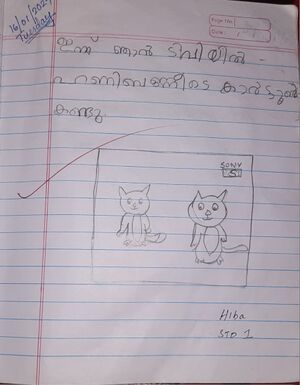 16/01/2024
Tuesday
Page No.
Date:
ഇന്ന് ഞാൻ ടിവിയിൽ
ഹണിബണ്ണീടെ കാർട്ടൂൺ
കണ്ടു
SONY
Hiba
STD 1